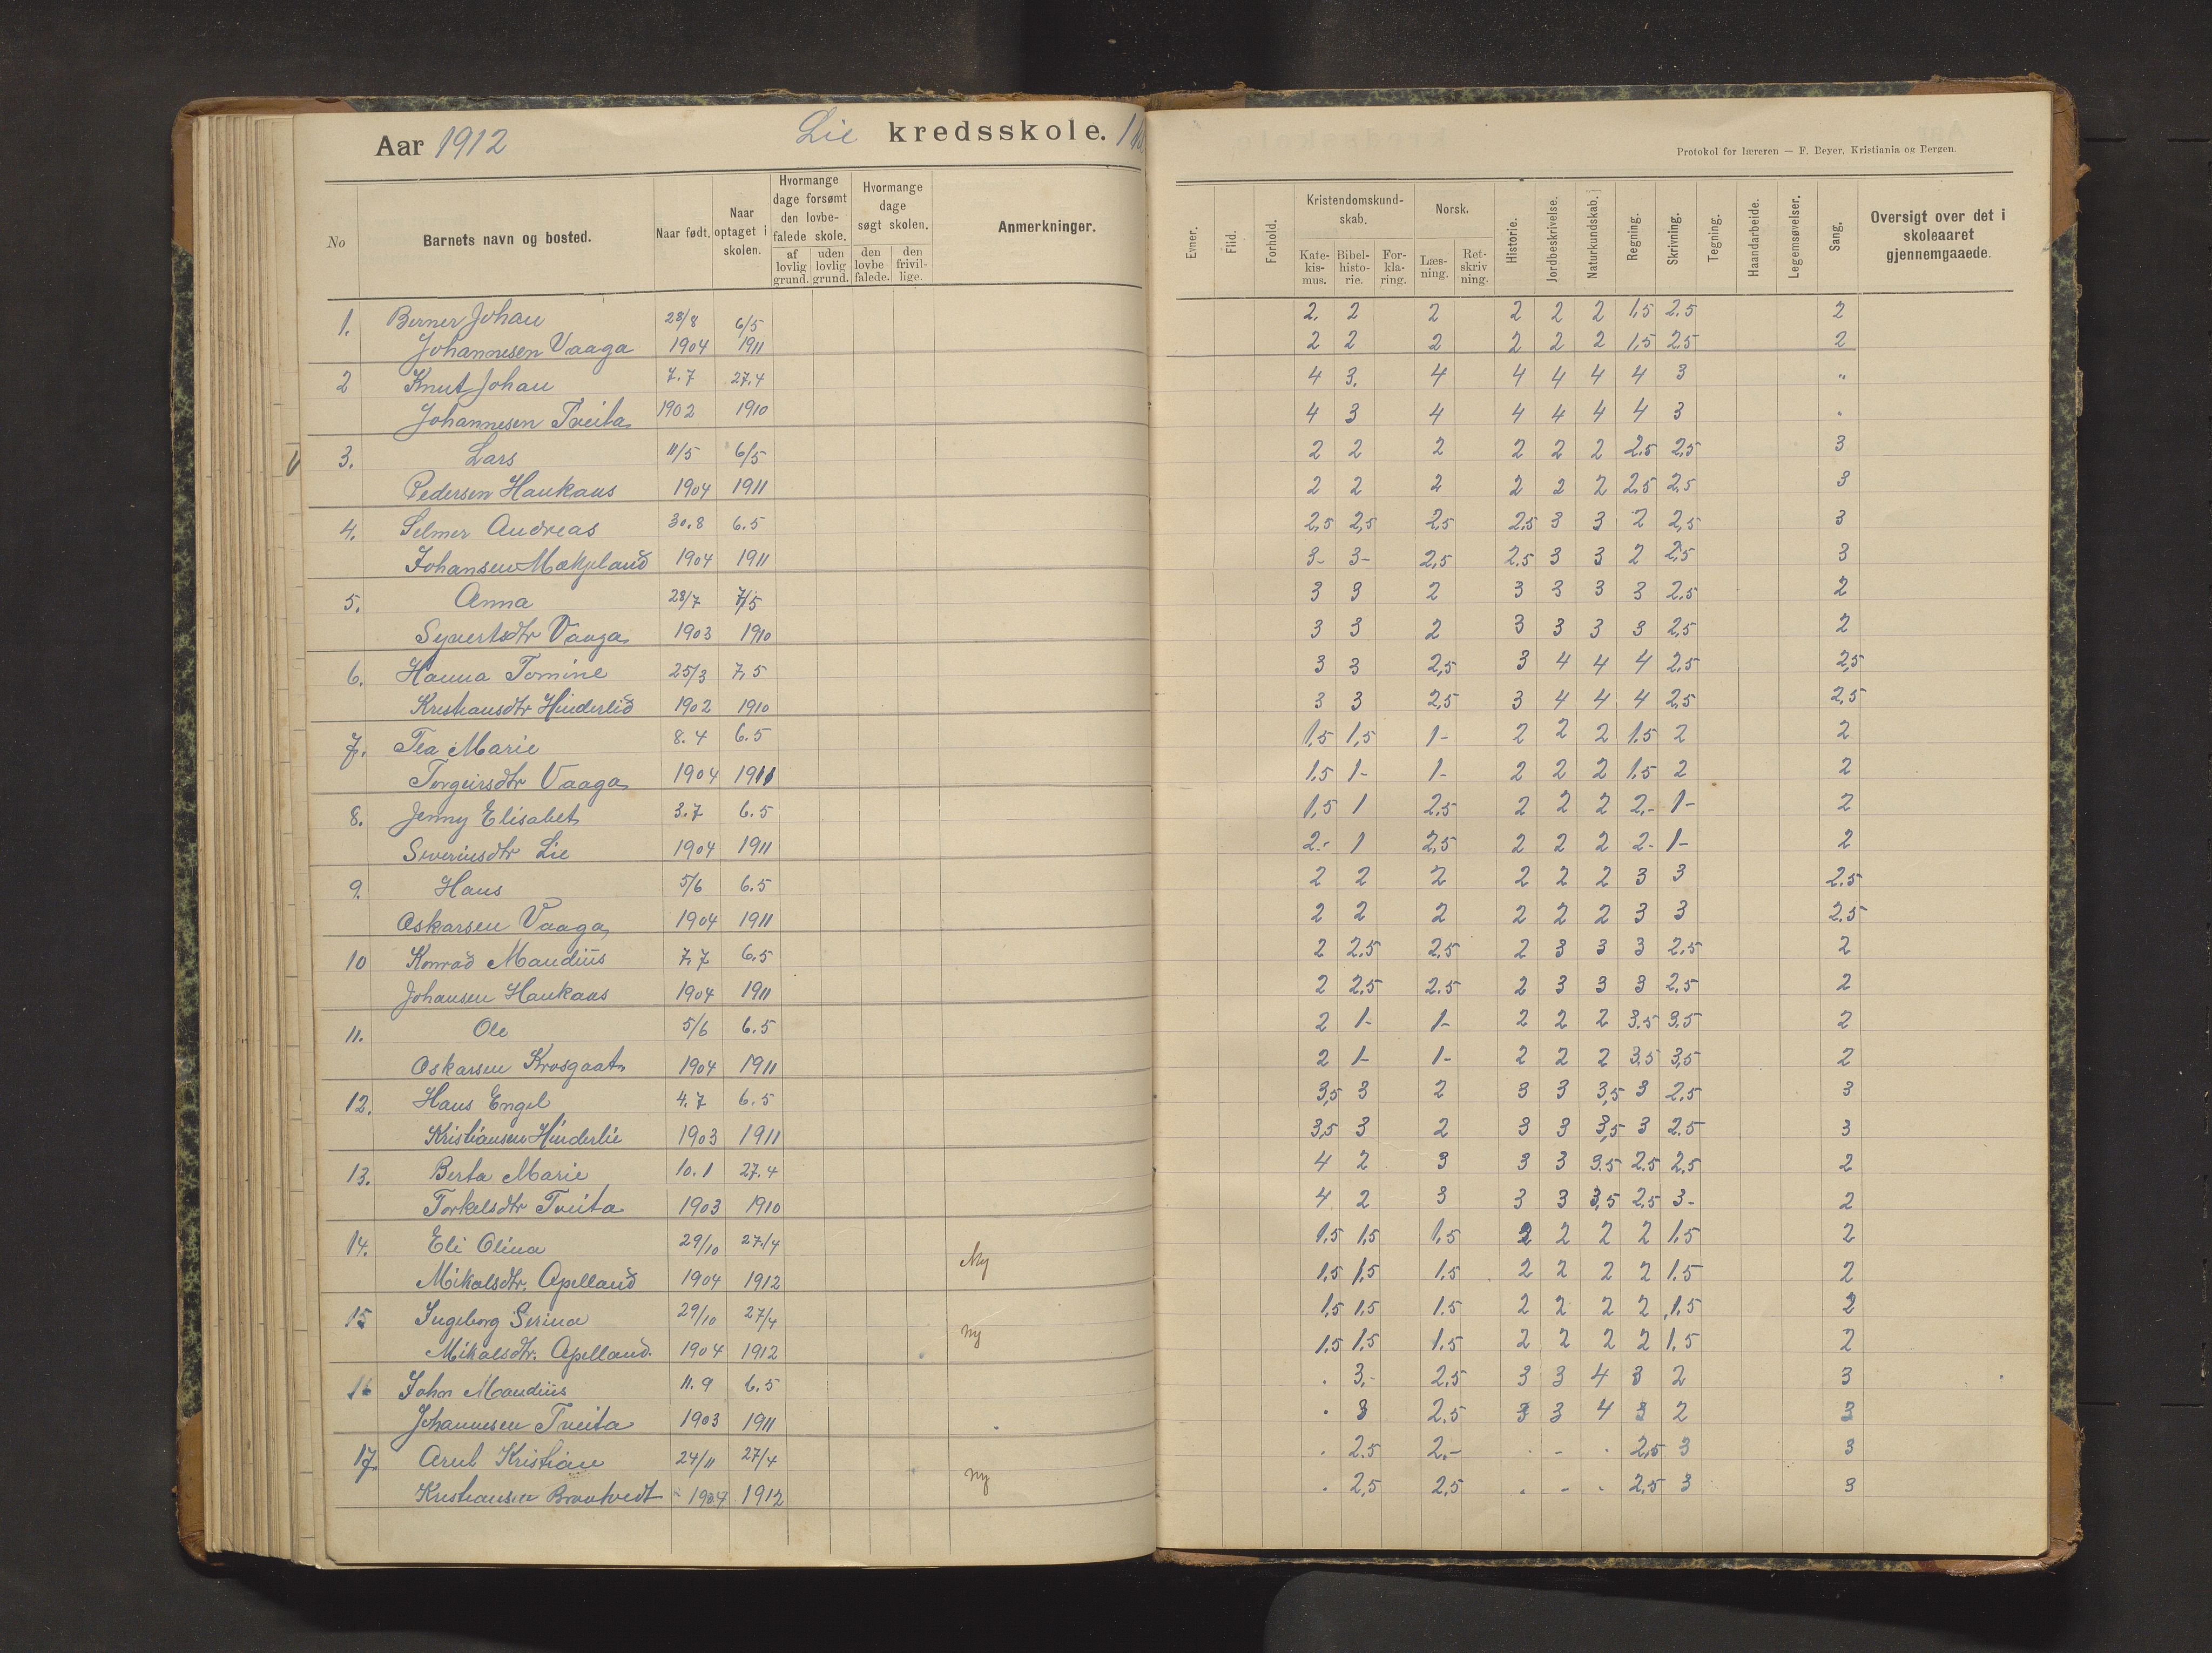 Aar 1912 Lie kredsskole.
Protokol for læreren — F. Beyer, Kristiania og Bergen.
No Barnets navn og bosted. Naar født. Naar optaget i skolen. Hvormange dage forsømt den lovbefalede skole. af lovlig grund. uden lovlig grund. Hvormange dage søgt skolen. den lovbefalede. den frivillige. Anmerkninger.
Evner. Flid. Forhold. Kristendomskundskab. Katekismus. Bibelhistorie. Forklaring. Norsk. Læsning. Retskrivning. Historie. Jordbeskrivelse. Naturkundskab. Regning. Skrivning. Tegning. Haandarbeide. Legemsøvelser. Sang. Oversigt over det i skoleaaret gjennemgaaede.
1. Berner Johan 28/8 6/5 2. 2 2 2 2 2 1,5 2.5 2
Johannesen Vaaga 1904 1911 2 2 2 2 2 2 1,5 2,5 2
2 Knut Johan 7.7 27.4 4 3. 4 4 4 4 4 3 "
Johannesen Tveita 1902 1910 4 3 4 4 4 4 4 3 .
V 3. Lars 11/5 6/5 2 2 2 2 2 2 2.5 2,5 3
Pedersen Haukaas 1904 1911 2 2 2 2 2 2 2.5 2,5 3
4. Selmer Andreas 30.8 6.5 2,5 2,5 2,5 2,5 3 3 2 2,5 3
Johansen 1904 1911 3- 3- 2,5 2.5 3 3 2 2,5 3
5. Anna 28/7 7/5 3 3 2 3 3 3 3 2.5 2
Syvertsdtr Vaaga 1903 1910 3 3 2 3 3 3 3 2,5 2
6. Hanna Tomine 25/3 7.5 3 3 2,5 3 4 4 4 2,5 2,5
Kristiansdtr Hinderlid 1902 1910 3 3 2,5 3 4 4 4 2,5 2,5
7. Tea Marie 8.4 6.5 1,5 1,5 1- 2 2 2 1.5 2 2
Torgeirsdtr Vaaga 1904 1911 1.5 1- 1- 2 2 2 1.5 2 2
8. Jenny Elisabet 3.7 6.5 1,5 1 2,5 2 2 2 2,- 1- 2
Siveriusdtr Lie 1904 1911 2.- 1 2,5 2 2 2 2- 1- 2
9. Hans 5/6 6.5 2 2 2 2 2 2 3 3 2.5
Oskarsen Vaaga 1904 1911 2 2 2 2 2 2 3 3 2.5
10 Konrad Maudius 7.7 6.5 2 2.5 2,5 2 3 3 3 2,5 2
Johansen Haukaas 1904 1911 2 2,5 2.5 2 3 3 3 2,5 2
11. Ole 5/6 6.5 2 1- 1- 2 2 2 3.5 3.5 2
Oskarsen Krosgaat 1904 1911 2 1- 1- 2 2 2 3,5 3,5 2
12. Hans Engel 4.7 6.5 3,5 3 2 3 3 3,5 3 2.5 3
Kristiansen Hinderlie 1903 1911 3,5 3 2 3 3 3,5 3 2.5 3
13. Berta Marie 10.1 27.4 4 2 3 3 3 3.5 2.5 2,5 2
Torkelsdtr Tveita 1903 1910 4 2 3 3 3 3,5 2,5 3- 2
14. Eli Olina 29/10 27/4 1,5 1,5 1,5 2 2 2 2 1.5 2
Mikalsdtr. Apelland 1904 1912 Ny 1,5 1,5 1.5 2 2 2 2 1.5 2
15 Ingeborg Serina 29/10 27/4 1,5 1,5 1.5 2 2 2 2 1.5 2
Mikalsdtr. Apelland. 1904 1912 ny 1,5 1,5 1.5 2 2 2 2 1,5 2
16 Johan Maudius 11.9 6.5 . 3,- 2.5 3 3 4 3 2 3
Johannesen Tveita 1903 1911 . 3 2.5 3 3 4 3 2 3
17. Arnt Kristian 24/11 27/4 . 2.5 2.- . - . 2,5 3 3
Kristiansen 1904 1912 ny . 2,5 2,5 . - . 2.5 3 3